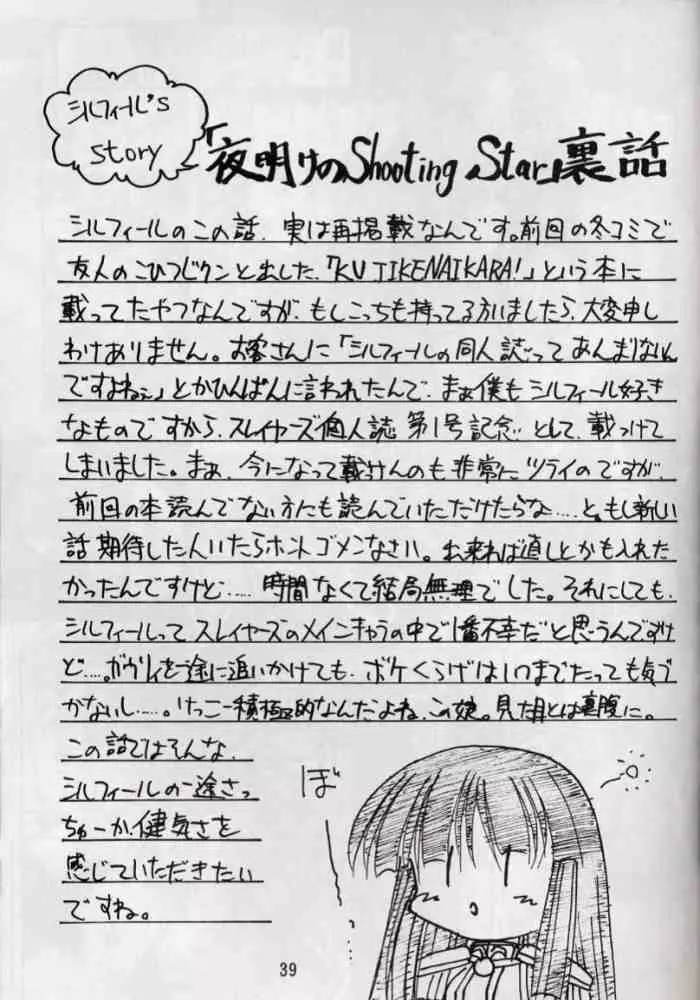 シルフィール's
story
「夜明けのShooting Star」裏話
シルフィールのこの話、実は再掲載なんです。前回の冬コミで
友人のこひつじクンと出した、「KUJIKENAIKARA!」という本に
載ってたやつなんですが、もしこっちも持ってる方いましたら、大変申し
わけありません。お客さんに「シルフィールの同人誌ってあんまりないん
ですよねぇ」とかひんぱんに言われたんで、まぁ僕もシルフィール好き
なものですから、スレイヤーズ個人誌 第1号記念 として、載っけて
しまいました。まぁ、今になって載けんのも非常にツライのですが、
前回の本読んでない方にも読んでいただけたらな……と。もし新しい
話期待した人いたらホントゴメンなさい。出来れば直しとかも入れた
かったんですけど……時間なくて結局無理でした。それにしても、
シルフィールってスレイヤーズのメインキャラの中で1番不幸だと思うんですけ
ど……。ガウリイを一途に追いかけても、ボケくらげはいつまでたっても気づ
かないし……。けっこー積極的なんだよね、この娘。見た目とは裏腹に。
この話ではそんな、
シルフィールの一途さっ
ちゅーか、健気さを
感じていただきたい
ですね。
ぼー
39